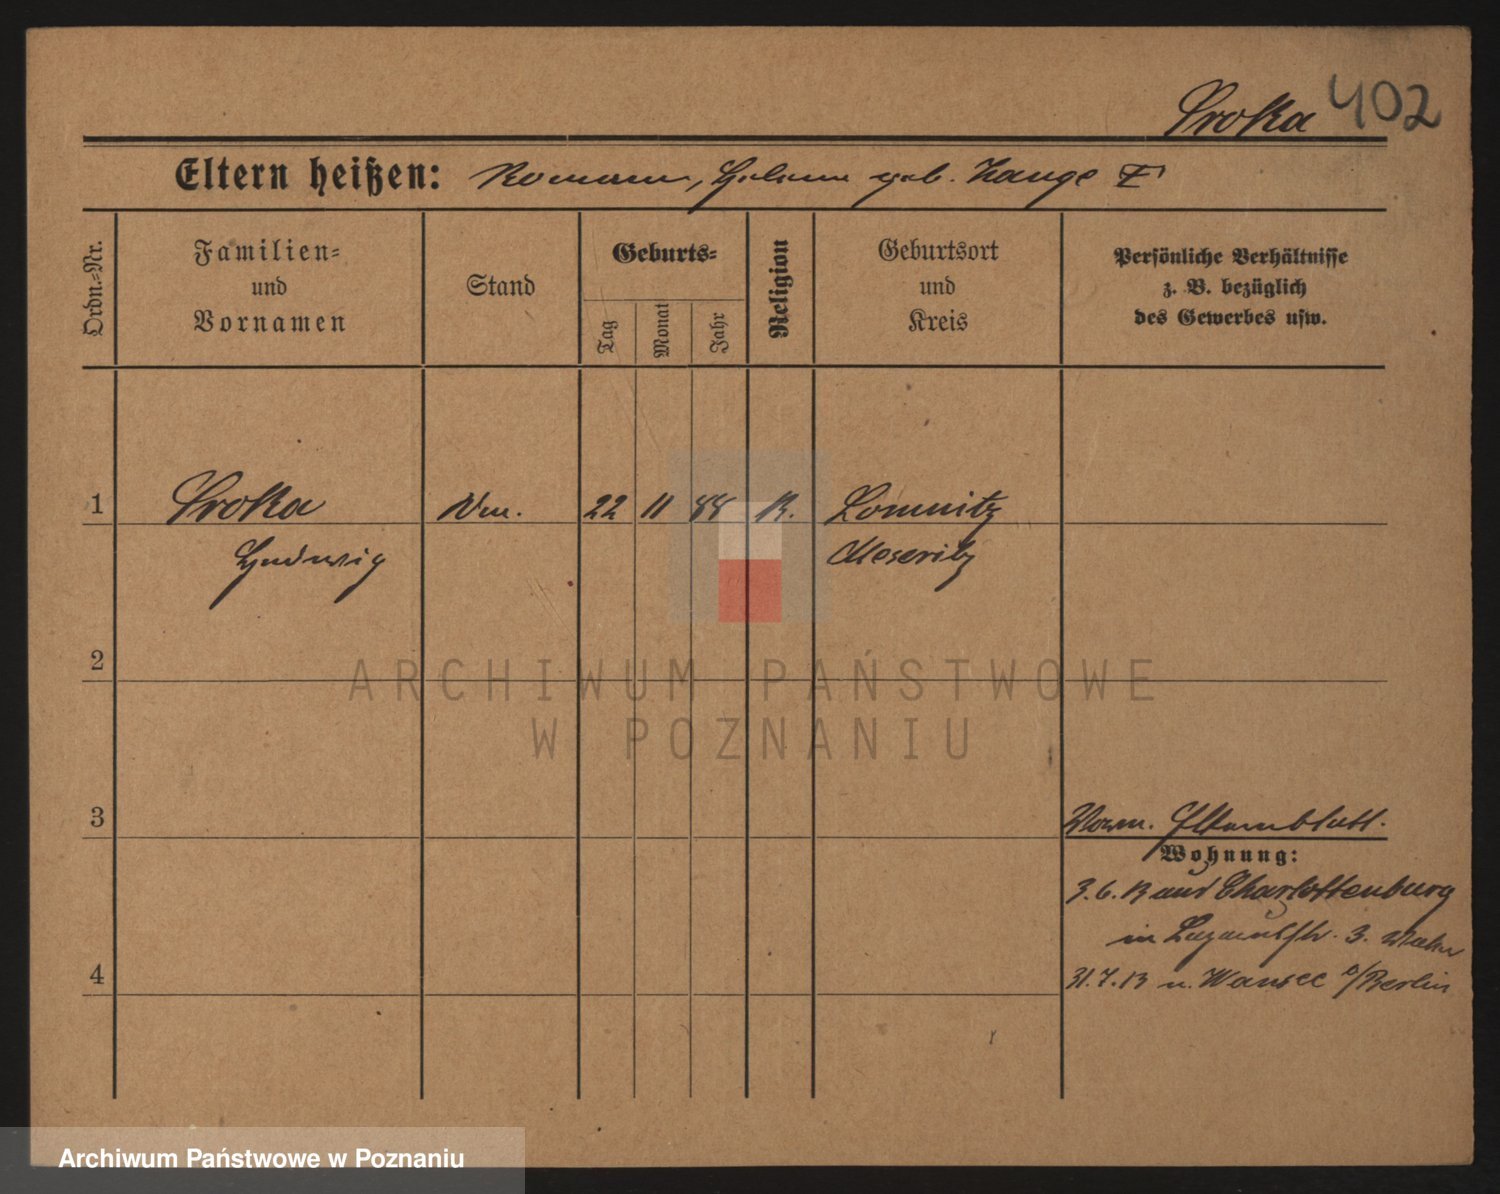 Sroka 402
Eltern heißen: Roman, Helene geb. Lange
Ordn.-Nr.
Familien-
und
Vornamen
Stand
Geburts-
Tag
Monat
Jahr
Religion
Geburtsort
und
Kreis
Persönliche Verhältnisse
z. B. bezüglich
des Gewerbes usw.
1 Sroka 22 11 88 K. Lomnitz
Ludwig Meseritz
2
ARCHIWUM PAŃSTWOWE
W POZNANIU
3 Elternblatt.
Wohnung:
3.6.13 aus Charlottenburg
in 3.
4 31.7.13 n. Wansee a/Berlin
Archiwum Państwowe w Poznaniu